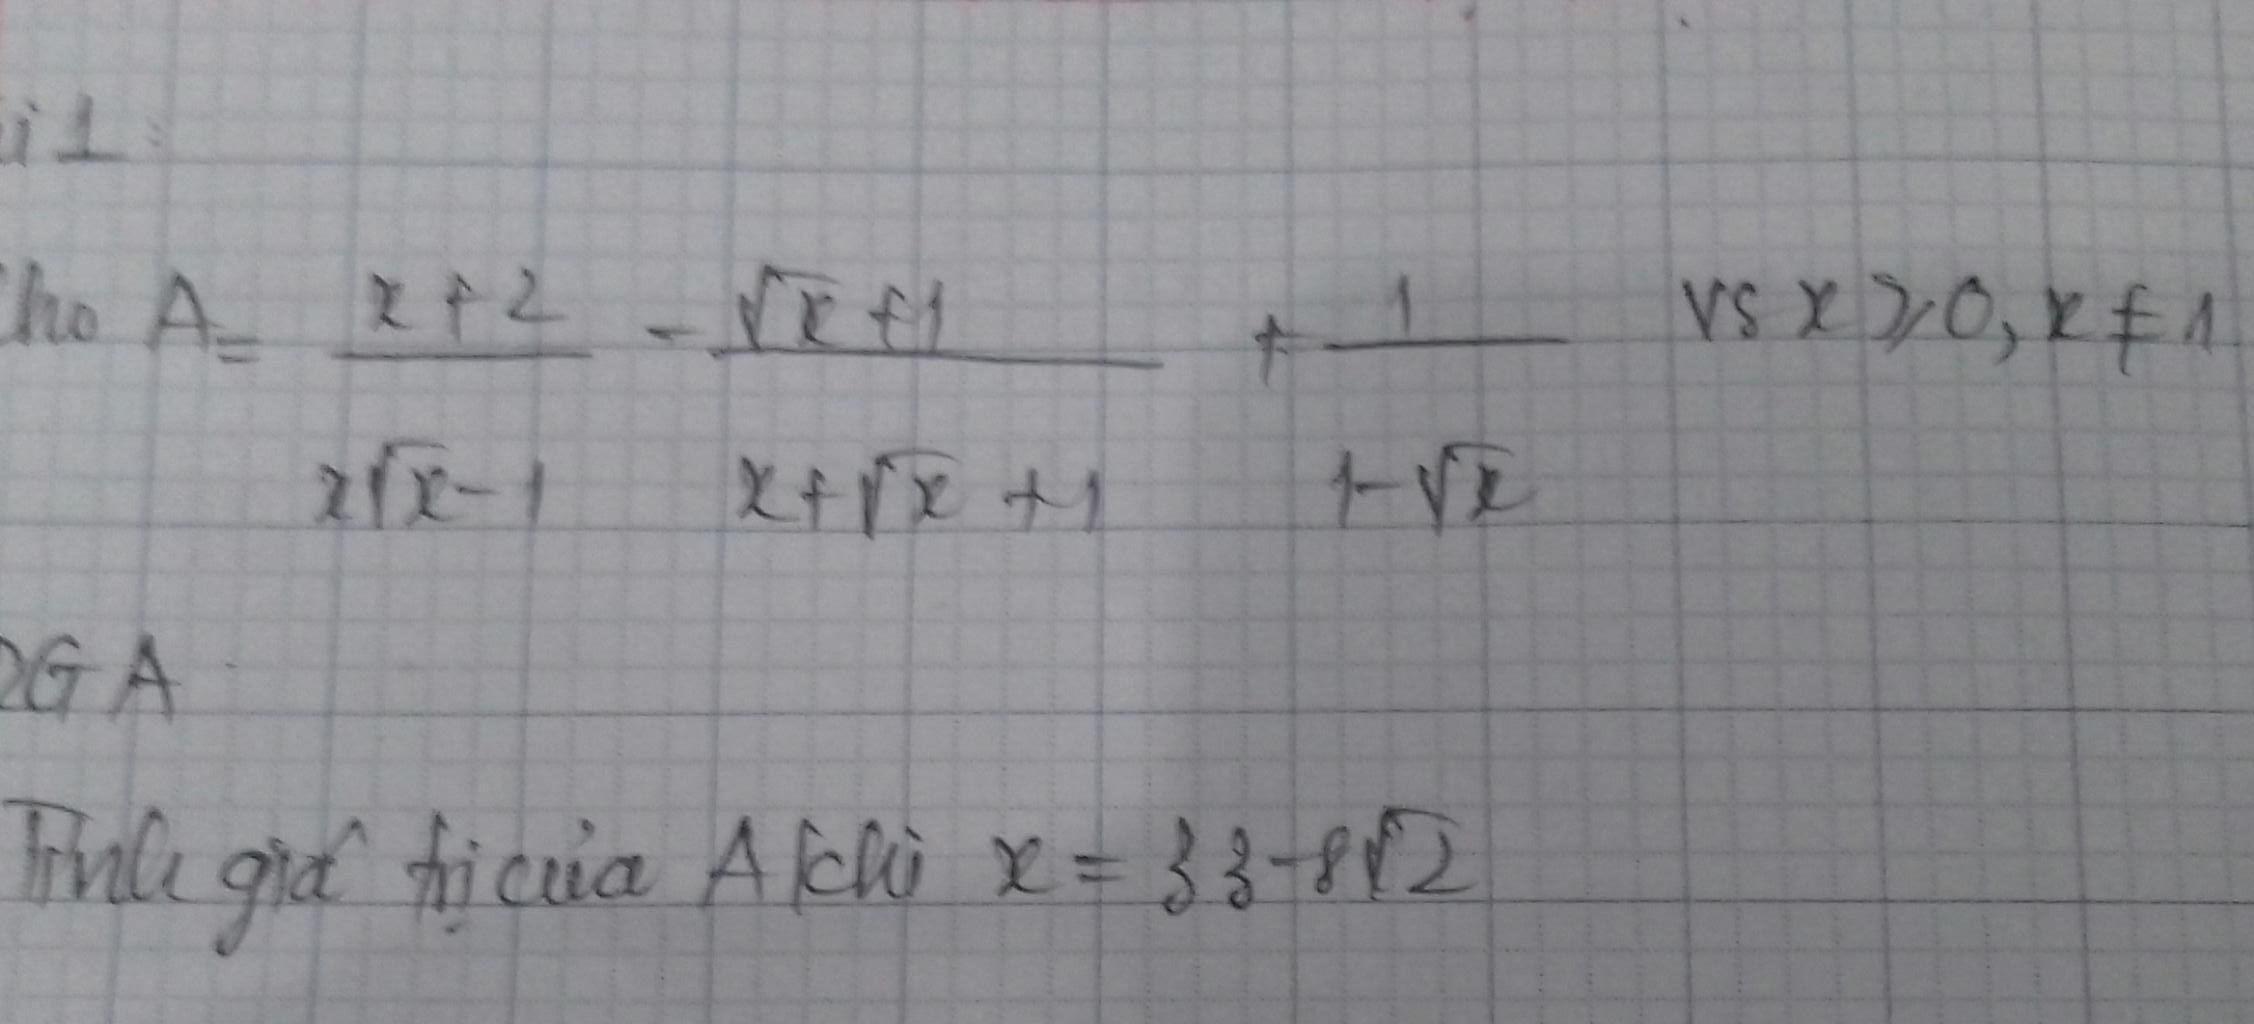 i 1:
ho A = x+2 / x√x-1 - √x+1 / x+√x+1 + 1 / 1-√x vs x ⩾ 0, x ≠ 1
RG A
Tính giá trị của A khi x = 33-8√2